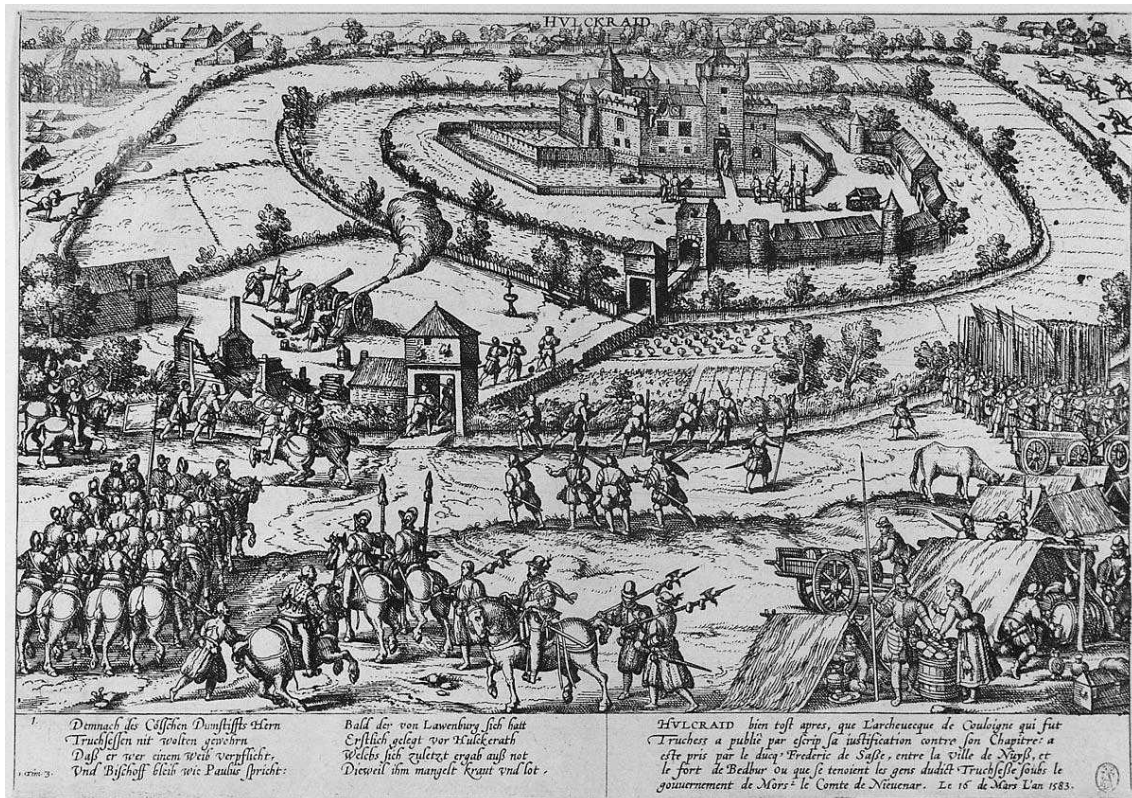 HVLCKRAID
1.
Demnach des Cölschen Dumstiffts Hern
Truchsessen nit wolten gewehrn
Daß er wer einem Weib verpflicht,
Vnd Bischoff bleib wie Paulus spricht:
1. Tim: 3.
Bald der von Lawenburg sich hatt
Erstlich gelegt vor Hulckerath
Welchs sich zuletzt ergab auß not
Dieweil ihm mangelt kraut vnd lot.
HVLCRAID bien tost apres, que L'archevecque de Couloigne qui fut
Truchess a publié par escrip sa iustification contre son Chapitre: a
este pris par le ducq Frederic de Saße, entre la Ville de Nuyß, et
le fort de Bedbur ou que se tenoient les gens dudict Truchseße soubs le
gouuernement de Mors et le Comte de Nieuenar. Le 16 de Mars L'an 1583.